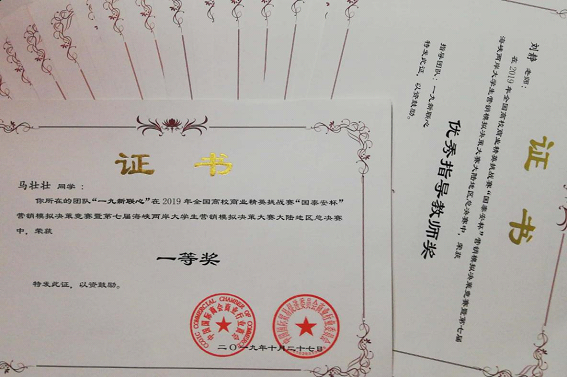 证 书
马壮壮 同学：
你所在的团队“一九新联心”在2019年全国高校商业精英挑战赛“国泰安杯”
营销模拟决策竞赛暨第七届海峡两岸大学生营销模拟决策大赛大陆地区总决赛
中，荣获
一等奖
特发此证，以资鼓励。
COIC COMMERCIAL CHAMBER OF COMMERCE
中国国际商会商业行业商会
二〇一九年十月二十七日
证 书
刘静 老师：
在2019年全国高校商业精英挑战赛“国泰安杯”营销模拟决策竞赛暨第七届
海峡两岸大学生营销模拟决策大赛大陆地区总决赛中，荣获
优秀指导教师奖
指导团队：一九新联心
特发此证，以资鼓励。